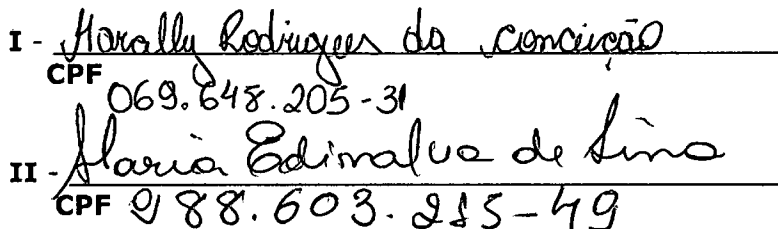 I - Harally Rodrigues da conceição
CPF
069.648.205-31
II - Maria Edinalva de Lima
CPF 988.603.215-49